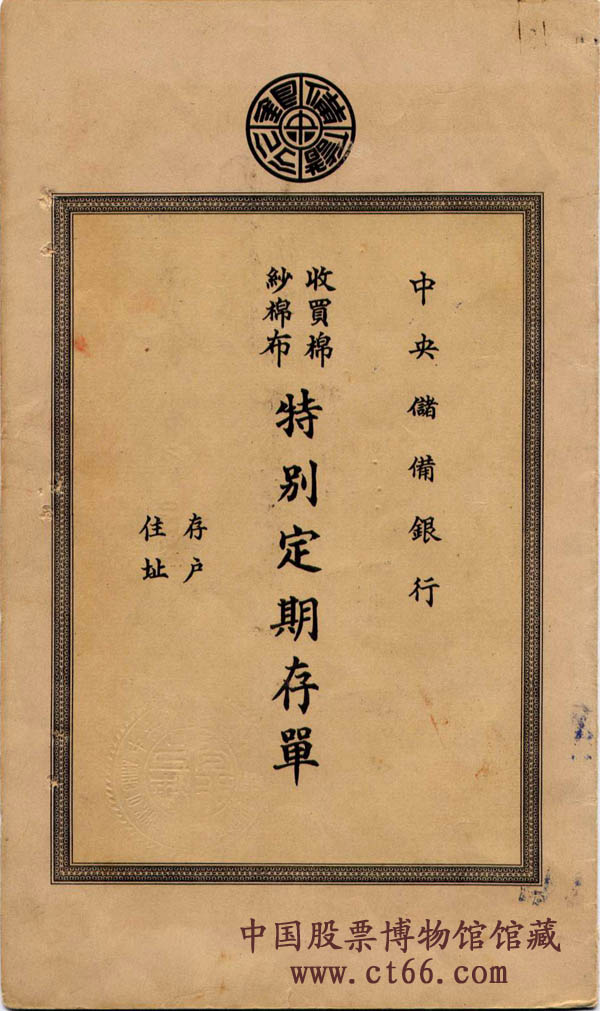 中央儲備銀行
收買棉
紗棉布
特別定期存單
存户
住址
中国股票博物馆馆藏
www.ct66.com